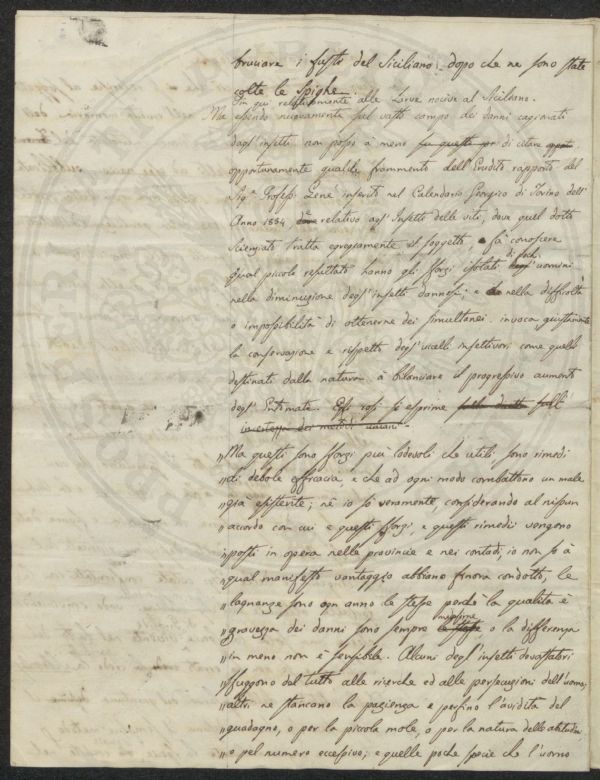 bruciare i fusti del Siciliano; dopo che ne sono state
colte le Spighe.
Fin qui relativamente alle Larve nocive al Siciliano.
Ma essendo nuovamente sul vasto campo dei danni cagionati
dagl'insetti non posso à meno su questo di citare
opportunamente qualche frammento dell'Erudito rapporto del
Sig.e Profess. Gené inserito nel Calendario Georgico di Torino dell'
Anno 1834, relativo agl'Insetti delle viti, dove quel dotto
Scienziato tratta egregiamente il soggetto, e fà conoscere
qual piccolo resultato hanno gli sforzi isolati di poch. uomini
nella diminuzione degl'insetti dannosi; e nella difficoltà
o impossibilità di ottenerne dei simultanei, invoca giustamente
la conservazione e rispetto degl'uccelli insettivori come quelli
destinati dalla natura à bilanciare il progressivo aumento
degl'Entomate. Egli così si esprime sulla dutt sull'
incertezza dei metodi umani.
"Ma questi sono sforzi più lodevoli che utili sono rimedi
"di debole efficacia, e che ad ogni modo combattono un male
"già esistente; nè io sò veramente, considerando al nissun
"accordo con cui e questi sforzi, e questi rimedii vengono
"posti in opera nelle provincie e nei contadi, io non sò à
"qual manifesto vantaggio abbiano finora condotto, le
"lagnanze sono ogn'anno le stesse perchè la qualità e
"gravezza dei danni sono sempre le stesse medesime o la differenza
"in meno non è sensibile. Alcuni degl'insetti devastatori
"fuggono dal tutto alle ricerche ed alle persecuzioni dell'uomo;
"altri ne stancano la pazienza e perfino l'avidità del
"guadagno, o per la piccola mole, o per la natura delle abitudini,
"o pel numero eccessivo; e quelle poche specie che l'uomo